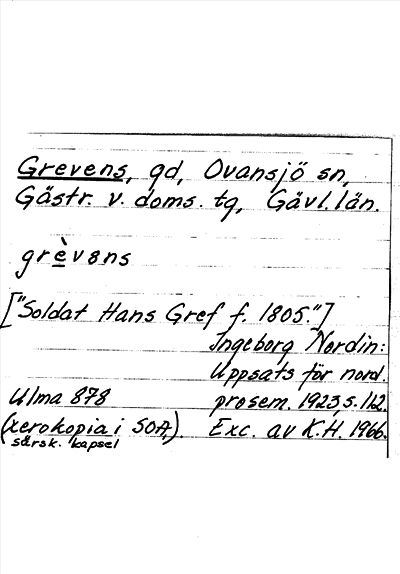 Grevens, gd, Ovansjö sn,
Gästr. v. doms. tg, Gävl. län.
grèvəns
["Soldat Hans Gref f. 1805."]
Ingeborg Nordin:
Uppsats för nord.
Ulma 878 prosem. 1923, s. 112.
(xerokopia i SOA,) Exc. av K.H. 1966.
särsk. kapsel